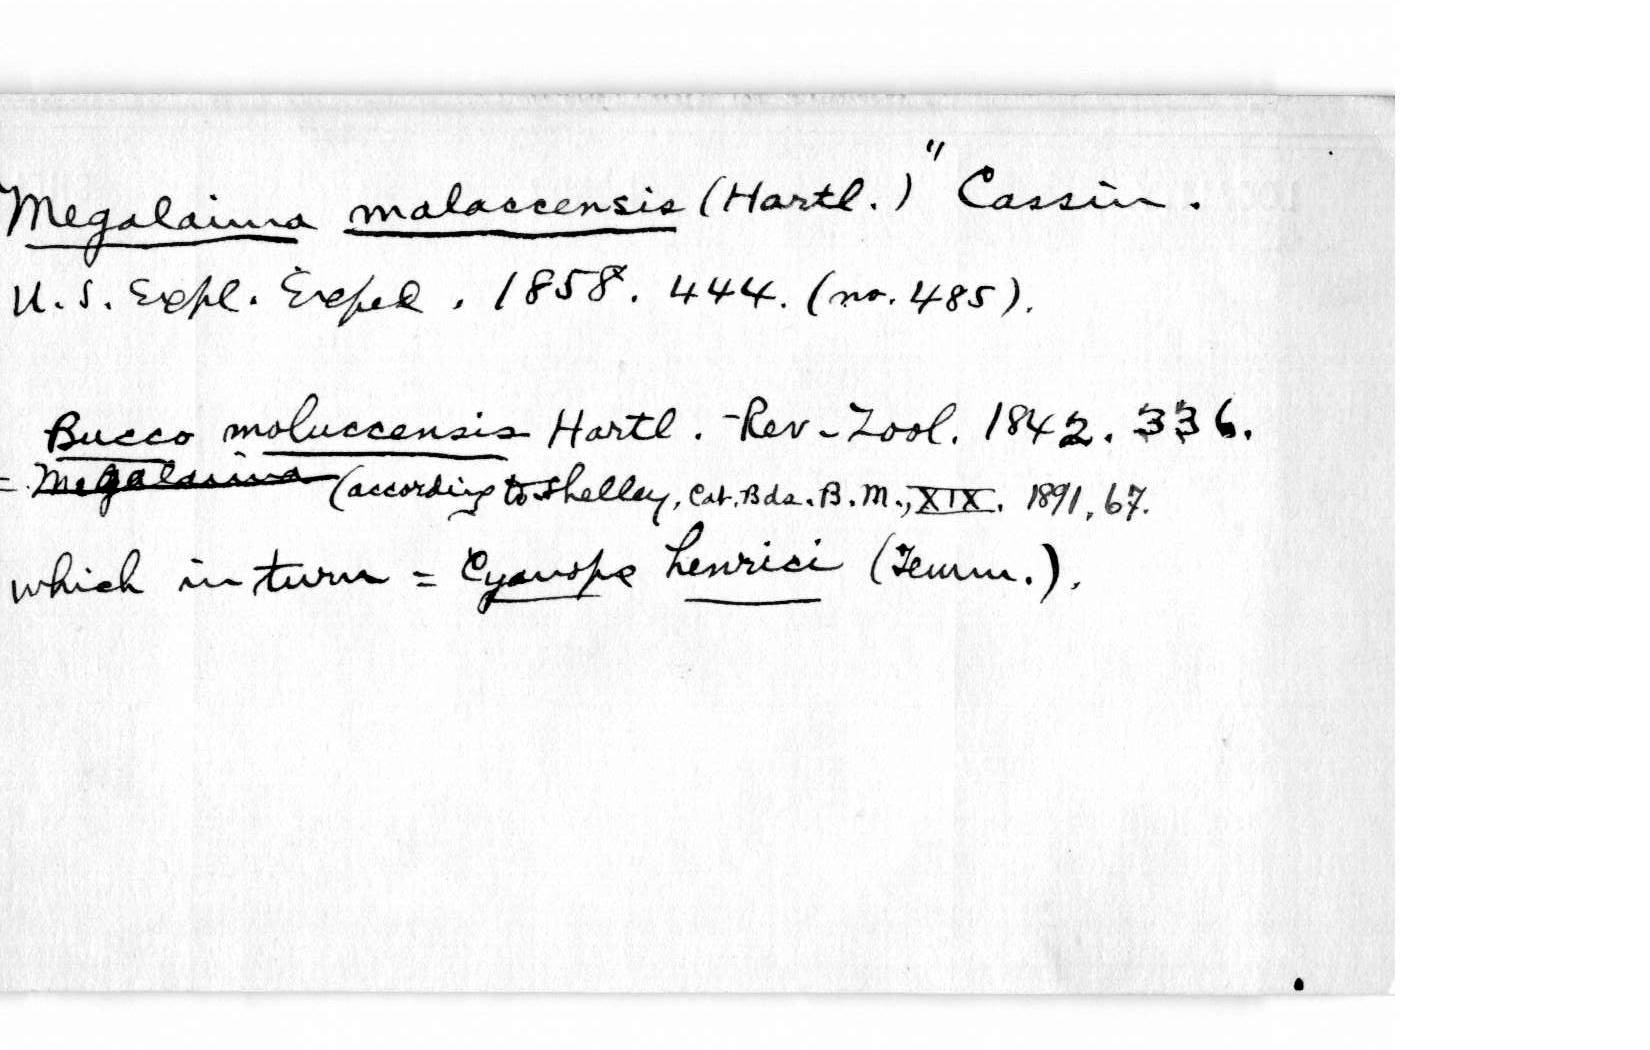 Megalaima malaccensis (Hartl.)" Cassin.
U.S. Expl. Exped. 1858. 444. (no. 485).
Bucco moluccensis Hartl. Rev. Zool. 1842. 336.
= Megalaima (according to Shelley, Cat. Bds. B. M., XIX. 1891, 67.
which in turn = Cyanops henrici (Temm.).